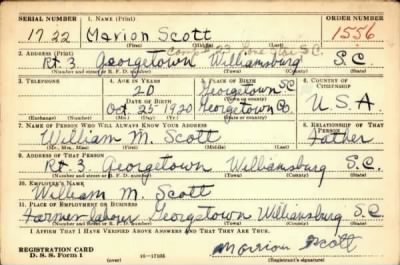 SERIAL NUMBER 1. NAME (Print) ORDER NUMBER
1722 Marion Scott 1556
(First) (Middle) (Last)
2. ADDRESS (Print)
Rt 3. Georgetown Williamsburg S.C.
(Number and street or R. F. D. number) (Town) (County) (State)
3. TELEPHONE 4. AGE IN YEARS 5. PLACE OF BIRTH 6. COUNTRY OF CITIZENSHIP
20 Georgetown SC
DATE OF BIRTH
Oct. 25-1920 Georgetown Co. U.S.A
(Exchange) (Number) (Mo.) (Day) (Yr.) (State or country)
7. NAME OF PERSON WHO WILL ALWAYS KNOW YOUR ADDRESS 8. RELATIONSHIP OF THAT PERSON
William M. Scott Father
(Mr., Mrs., Miss) (First) (Middle) (Last)
9. ADDRESS OF THAT PERSON
Rt 3. Georgetown Williamsburg S.C.
(Number and street or R. F. D. number) (Town) (County) (State)
10. EMPLOYER'S NAME
William M. Scott
11. PLACE OF EMPLOYMENT OR BUSINESS
Farmer Georgetown Williamsburg S.C.
(Number and street or R. F. D. number) (Town) (County) (State)
I AFFIRM THAT I HAVE VERIFIED ABOVE ANSWERS AND THAT THEY ARE TRUE.
REGISTRATION CARD
D. S. S. Form 1 (over) Marion Scott
(Registrant's signature)